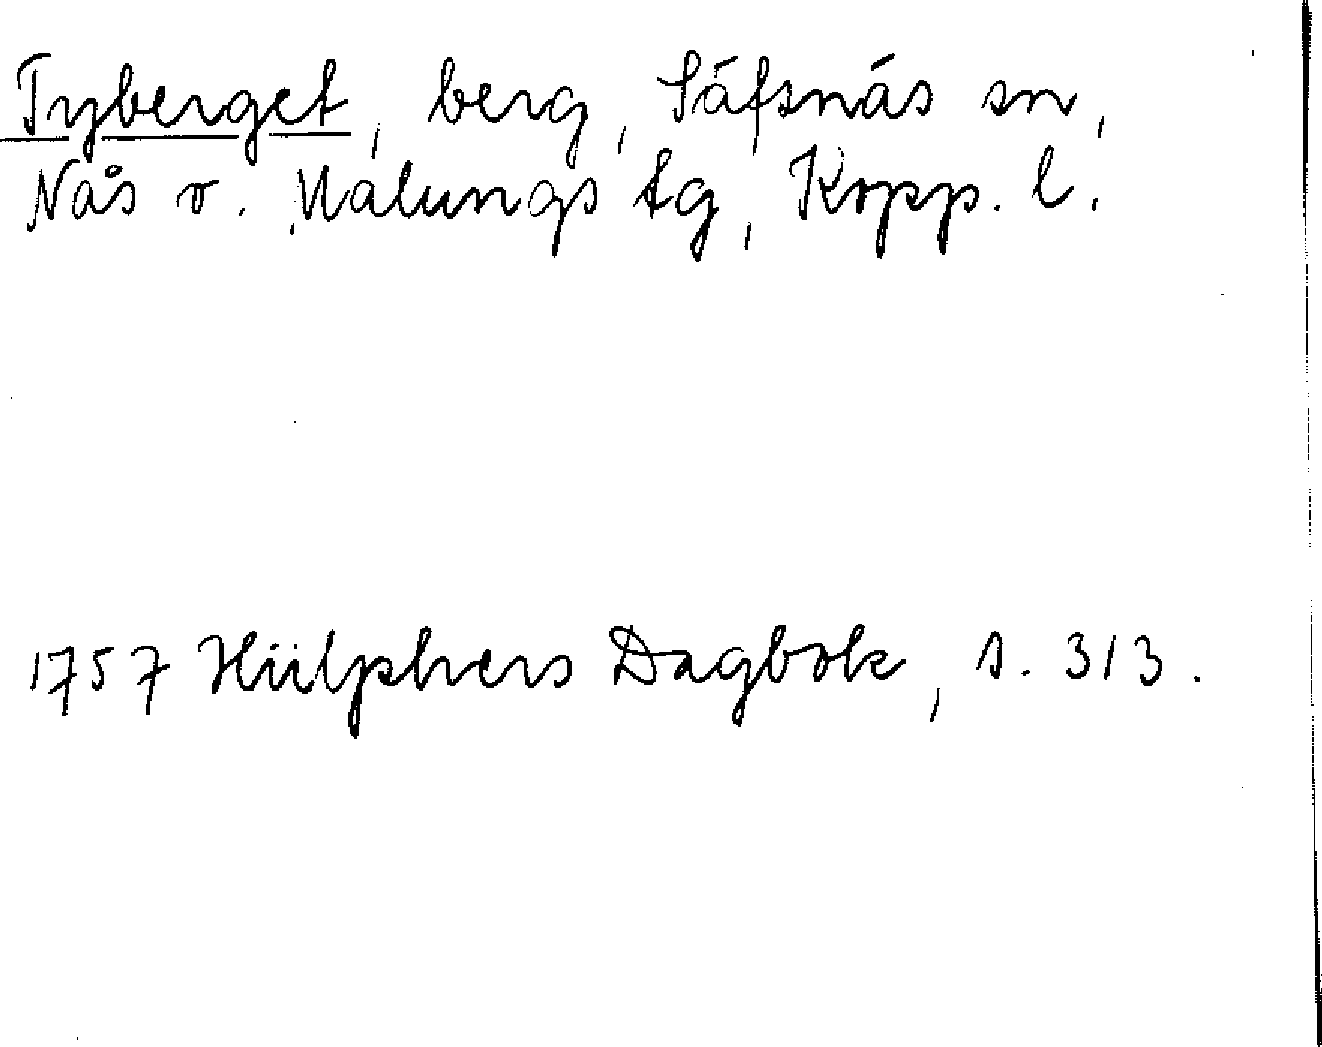 Tyberget, berg, Säfsnäs sn,
Nås o. Malungs tg, Kopp. l.
1757 Hülphers Dagbok, s. 313.